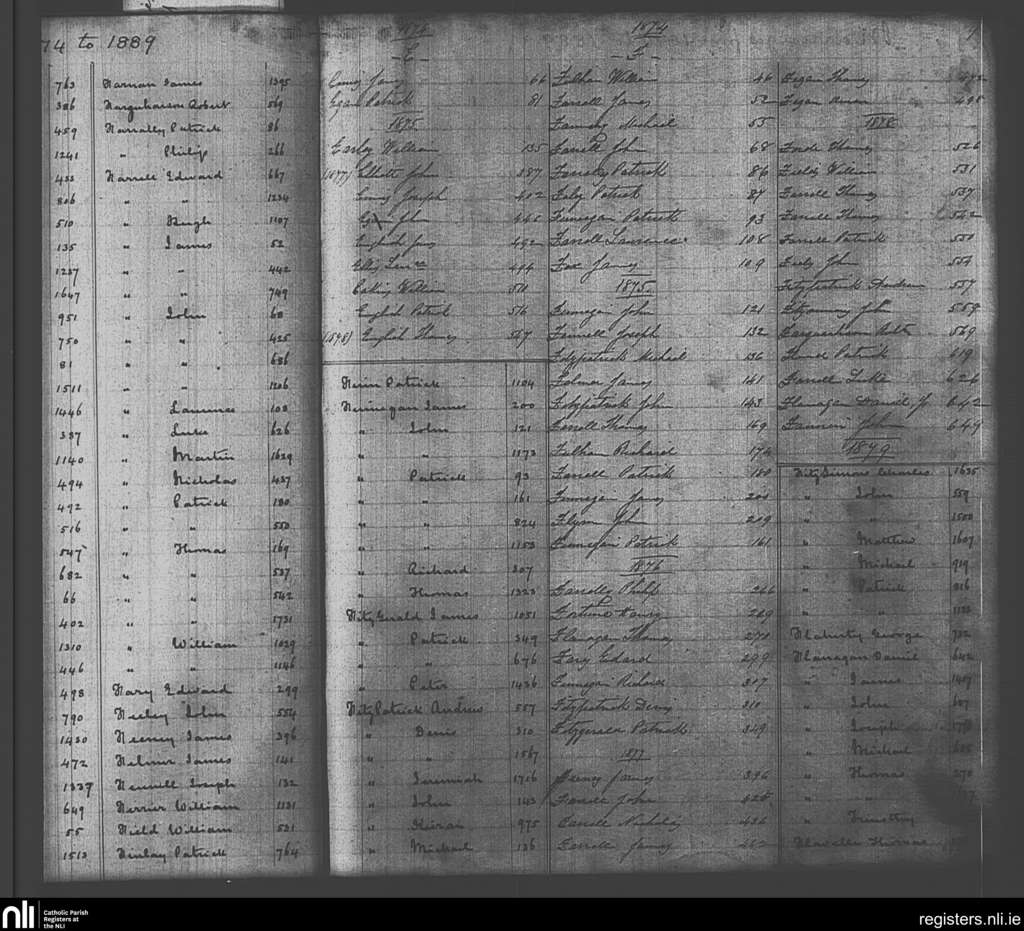 74 to 1889
763 Farnan James 1395
386 Farquharson Robert 569
459 Farrally Patrick 86
1241 " Philip 266
433 Farrell Edward 667
806 " " 1234
510 " Hugh 1107
135 " James 52
1237 " " 442
1647 " " 749
951 " John 68
750 " " 425
81 " " 686
1511 " " 1206
1446 " Laurence 108
337 " Luke 626
1140 " Martin 1629
494 " Nicholas 437
492 " Patrick 180
516 " " 550
547 " Thomas 169
682 " " 537
66 " " 542
402 " " 1731
1310 " William 1029
446 " " 1146
498 Fary Edward 299
790 Feeley John 554
1430 Feeney James 396
472 Felmer James 141
1337 Fennell Joseph 132
649 Ferrier William 1131
55 Field William 531
1513 Finlay Patrick 764
1874
- E -
66
Egan Patrick 81
1875
William 135
1877) Elliott John 387
Joseph 402
John
English James 492
494
Eakins William 511
English Patrick 516
English Thomas 567
Finn Patrick 1104
Finnegan James 200
" John 121
" " 1173
" Patrick 93
" " 161
" " 824
" " 1153
" Richard 307
" Thomas 1323
FitzGerald James 1051
" Patrick 349
" " 676
" Peter 1436
FitzPatrick Andrew 557
" Denis 310
" " 1567
" Jeremiah 1716
" John 143
" Kieran 975
" Michael 136
1874
- F -
Falhan William 46
Farrell James 52
Michael 55
Farrell John 68
Patrick 86
Patrick 87
Finnegan Patrick 93
Farrell Laurence 108
Fox James 109
1875
Finnegan John 121
Fennell Joseph 132
Fitzpatrick Michael 136
Felmer James 141
Fitzpatrick John 143
Farrell Thomas 169
Falhan Richard 174
Farrell Patrick 180
Finnegan James 200
Flynn John 219
Finnegan Patrick 161
1876
Farrelly Philip 266
Fortune Henry 269
Flanagan Thomas 270
Fary Edward 299
Finnegan Richard 307
Fitzpatrick Denis 310
Fitzgerald Patrick 349
1877
Feeney James 396
Farrell John 425
Farrell Nicholas 436
Farrell James 442
Fegan Thomas 472
Fegan 495
1878
Forde Thomas 526
Field William 531
Farrell Thomas 537
Farrell Thomas 542
Farrell Patrick 550
Feely John 554
Fitzpatrick Andrew 557
Fitzsimons John 559
Farquharson Robt 569
Patrick 619
Farrell Luke 626
Flanagan Daniel 642
John 649
1879
FitzSimons Charles 1635
" John 559
" " 1500
" Matthew 1607
" Michael 919
" Patrick 816
" "
Flaherty George 732
Flanagan Daniel 642
" James 1407
" John 607
" Joseph
" Michael
" Thomas 270
" "
" Timothy
Flavelle Thomas
nli
Catholic Parish
Registers at
the NLI
registers.nli.ie